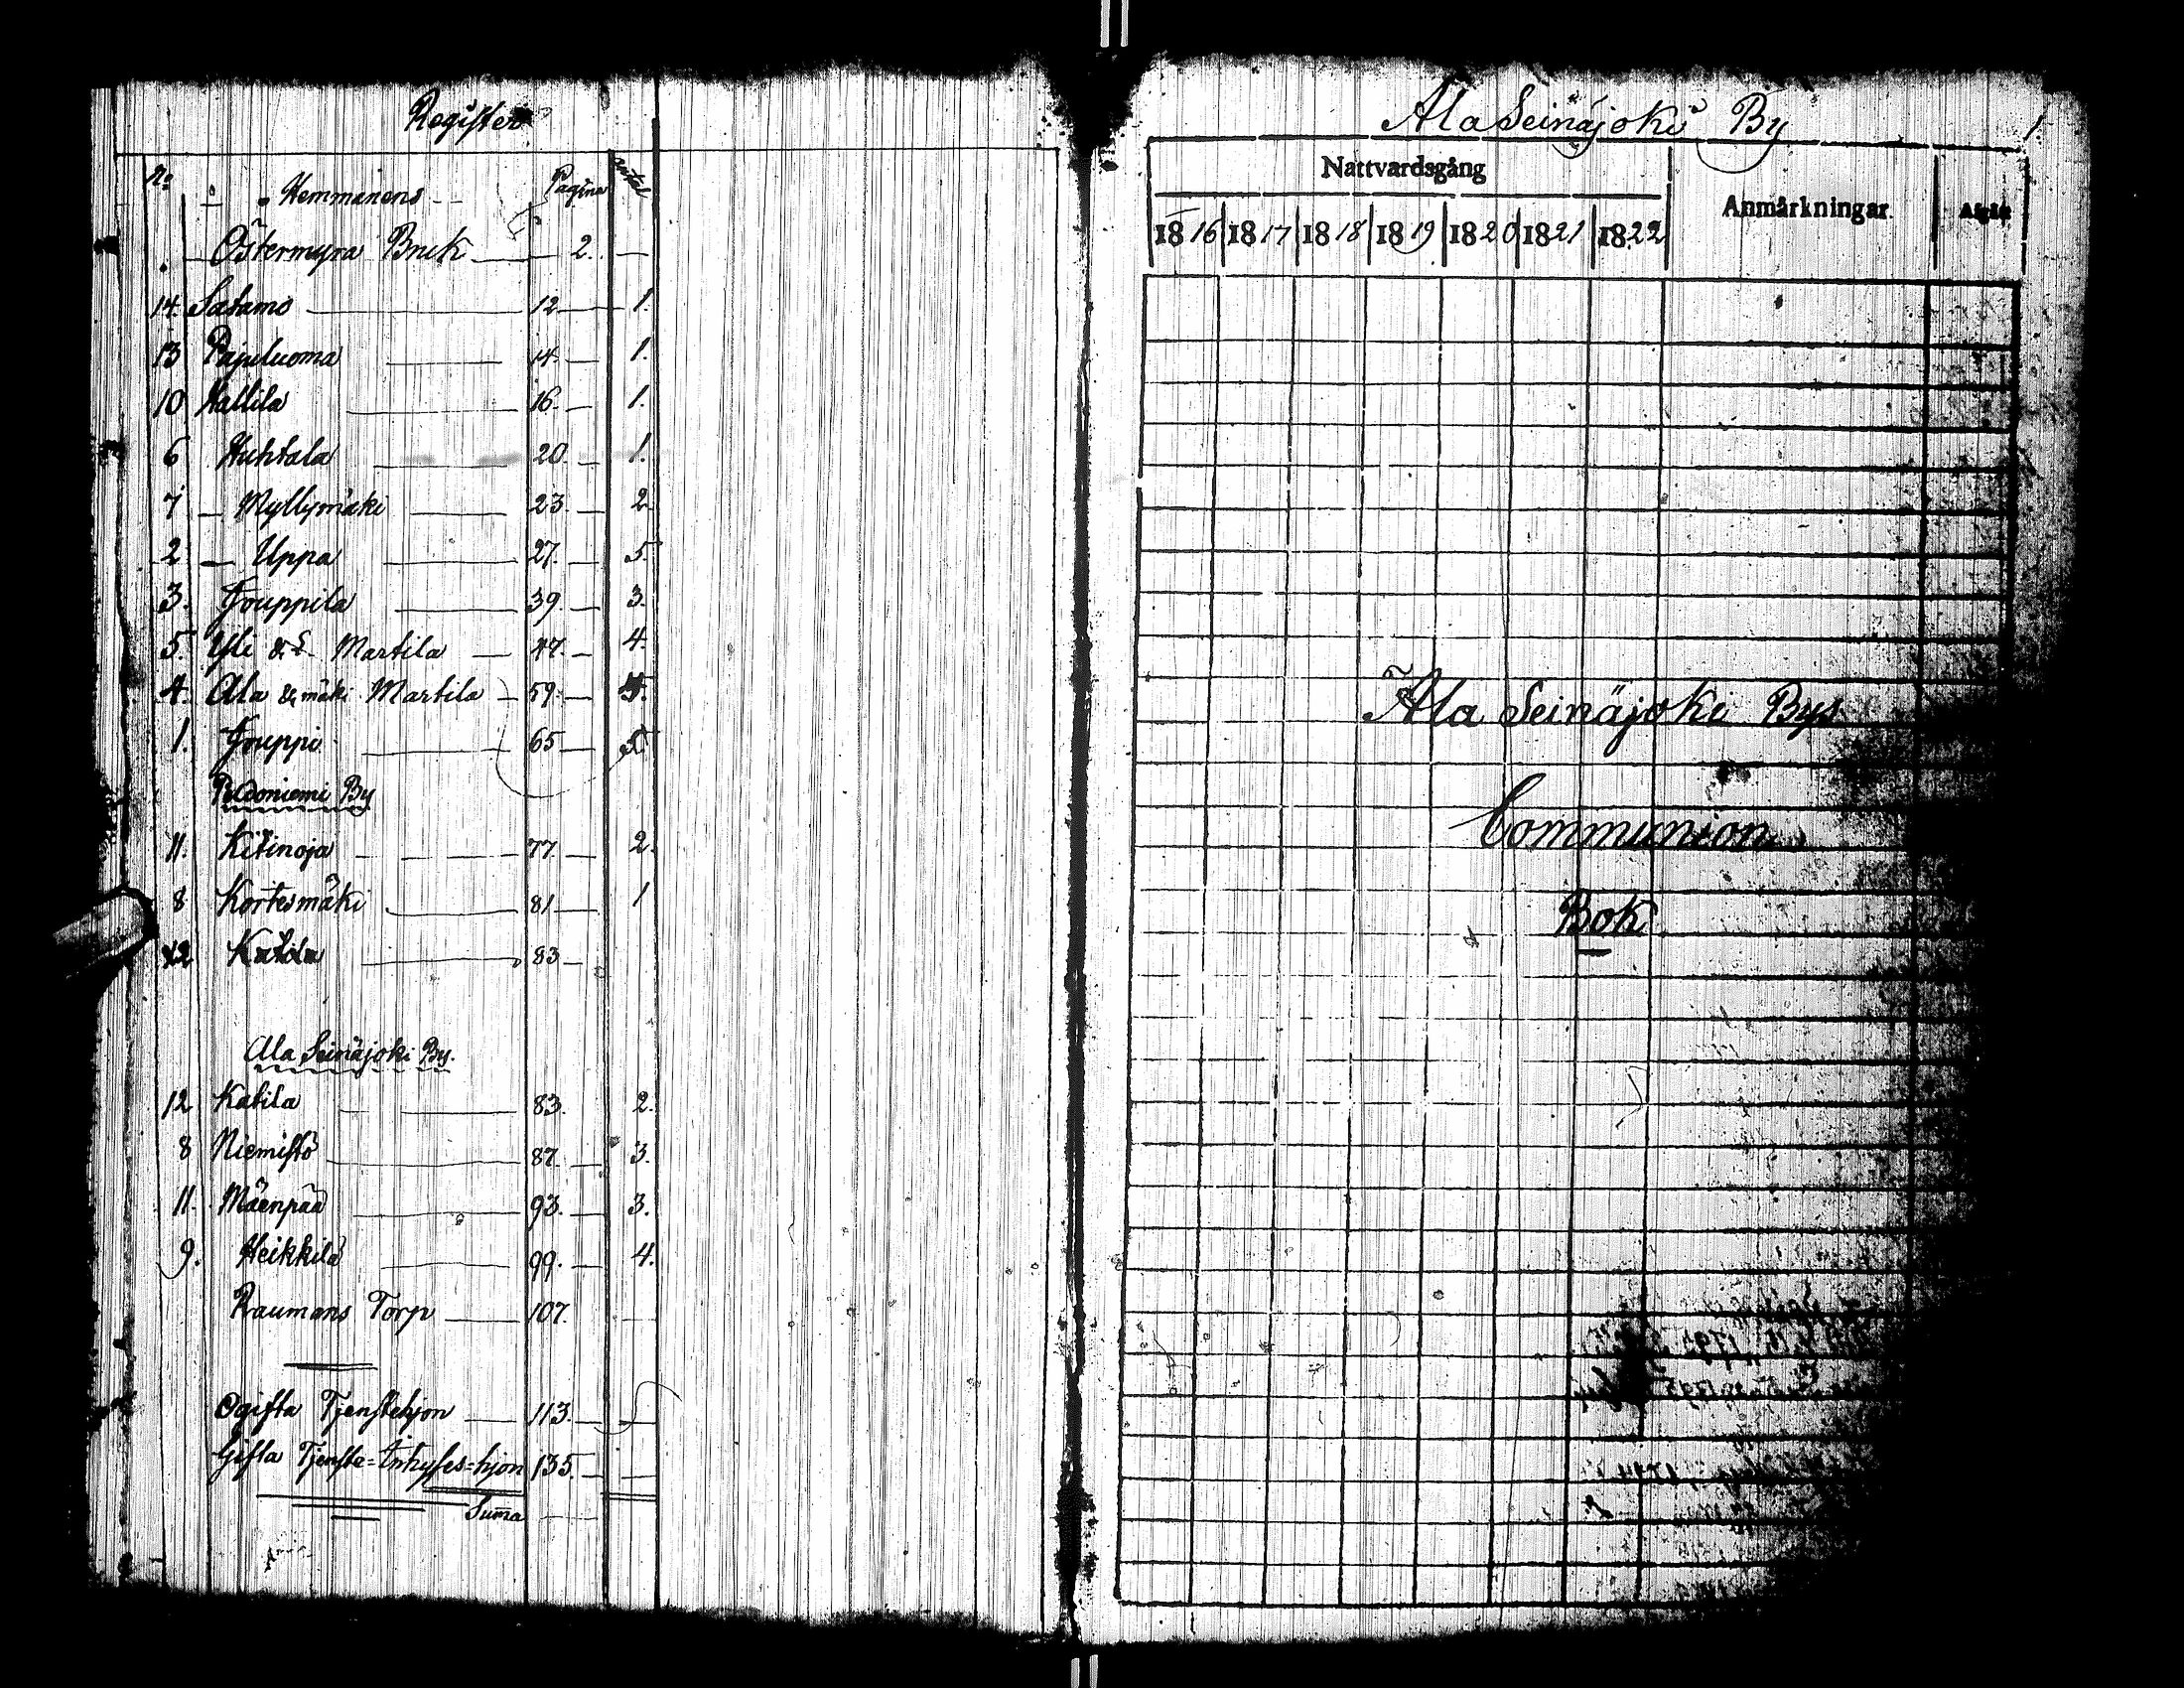 Register
No Hemmanens Pagina antal
Östermyra Bruk 2.
14. Satamo 12 1.
13 Pajuluoma 14. 1.
10 Hallila 16. 1.
6 Huhtala 20. 1.
7 Myllymäki 23. 2
2 Uppa 27. 5.
3. Jouppila 39. 3.
5. Yli &. Martila 47. 4.
4. Ala & mäki Martila 59.
1. Jouppi 65
By
11. Kitinoja 77. 2.
8 Kortesmäki 81 1
12 Katila 83
Ala Seinäjoki By.
12 Katila 83. 2.
8 Niemistö 87. 3.
11. Mäenpää 93. 3.
9. Heikkilä 99. 4.
Raumans Torp 107.
Ogifta Tjenstehjon 113.
Gifta Tjenste=Inhyses=hjon 135
Suma
Ala Seinäjoki By 1
Nattvardsgång Anmärkningar.
1816 1817 1818 1819 1820 1821 1822
Ala Seinäjoki Bys
Communion
Bok